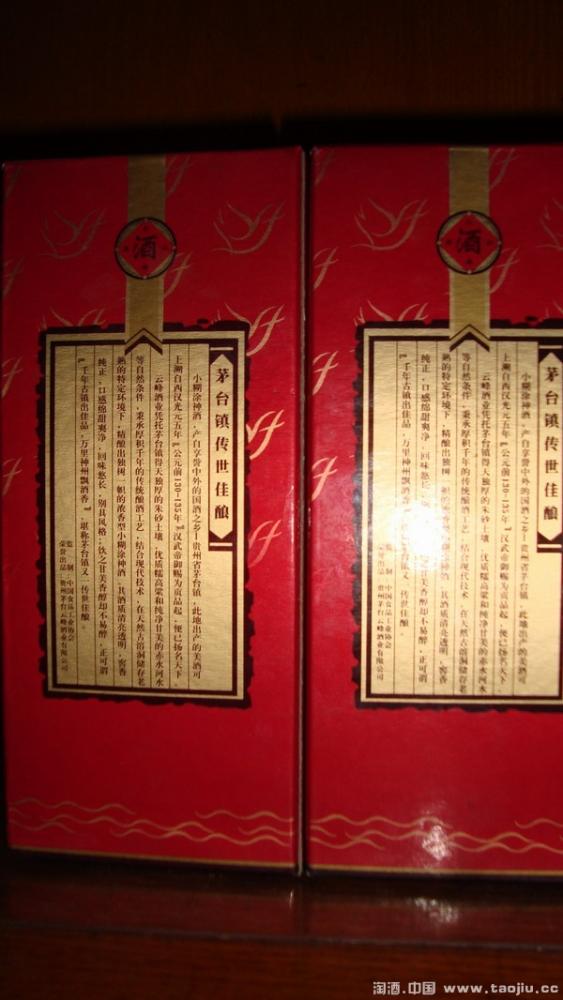 酒
茅台镇传世佳酿
小糊涂神酒,产自享誉中外的国酒之乡—贵州省茅台镇,此地出产的美酒可
上溯自西汉光元五年『公元前130-135年』汉武帝御赐为贡品起,便已扬名天下。
云峰酒业凭托茅台镇得天独厚的朱砂土壤、优质糯高粱和纯净甘美的赤水河水
等自然条件,秉承厚积千年的传统酿酒工艺,结合现代技术,在天然古溶洞储存老
熟的特定环境下,精酿出独树一帜的浓香型小糊涂神酒,其酒质清亮透明,窖香
纯正,口感绵甜爽净,回味悠长,别具风格;饮之甘美香醇却不易醉,正可谓
『千年古镇出佳品,万里神州飘酒香』,堪称茅台镇又一传世佳酿。
监 制:中国食品工业协会
荣誉出品:贵州茅台云峰酒业有限公司
酒
茅台镇传世佳酿
小糊涂神酒,产自享誉中外的国酒之乡—贵州省茅台镇,此地出产的美酒可
上溯自西汉光元五年『公元前130-135年』汉武帝御赐为贡品起,便已扬名天下。
云峰酒业凭托茅台镇得天独厚的朱砂土壤、优质糯高粱和纯净甘美的赤水河水
等自然条件,秉承厚积千年的传统酿酒工艺,结合现代技术,在天然古溶洞储存老
熟的特定环境下,精酿出独树一帜的浓香型小糊涂神酒,其酒质清亮透明,窖香
纯正,口感绵甜爽净,回味悠长,别具风格;饮之甘美香醇却不易醉,正可谓
『千年古镇出佳品,万里神州飘酒香』,堪称茅台镇又一传世佳酿。
监 制:中国食品工业协会
荣誉出品:贵州茅台云峰酒业有限公司
淘酒.中国 www.taojiu.cc